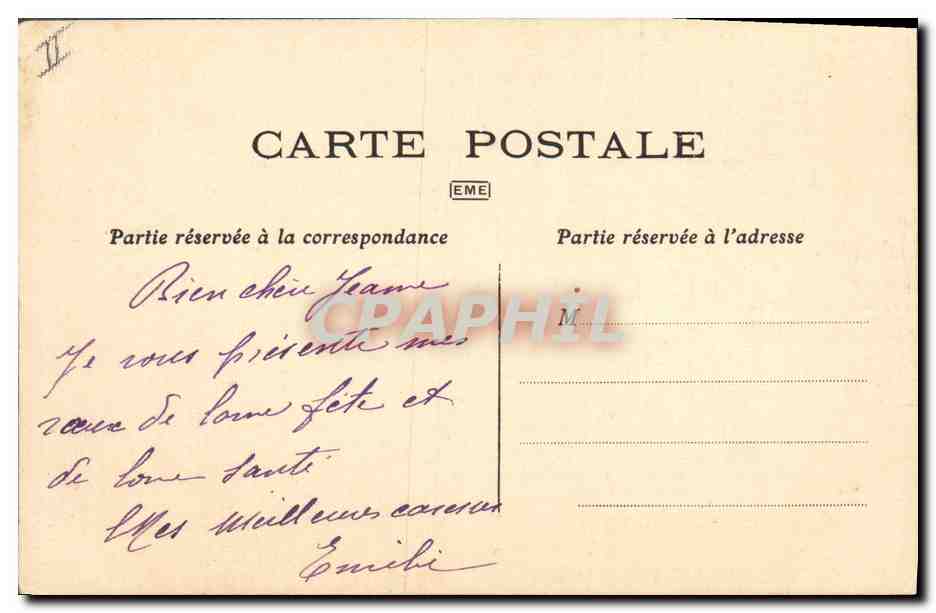 CARTE POSTALE
EME
Partie réservée à la correspondance
Partie réservée à l'adresse
Bien chère Jeanne
Je vous présente mes
vœux de bonne fête et
de bonne santé
Mes meilleures caresses
Emilie
M
CPAPHIL